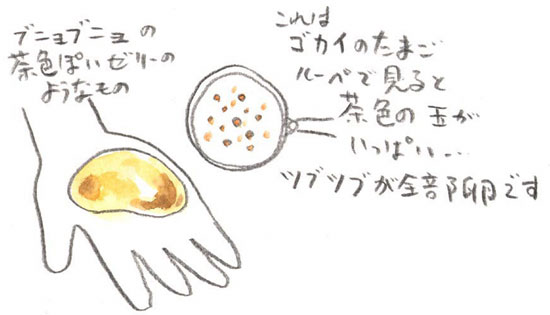 ブニョブニョの
茶色ぽいゼリーの
ようなもの
これは
ゴカイのたまご
ルーペで見ると
茶色の玉が
いっぱい…
ツブツブが全部卵です